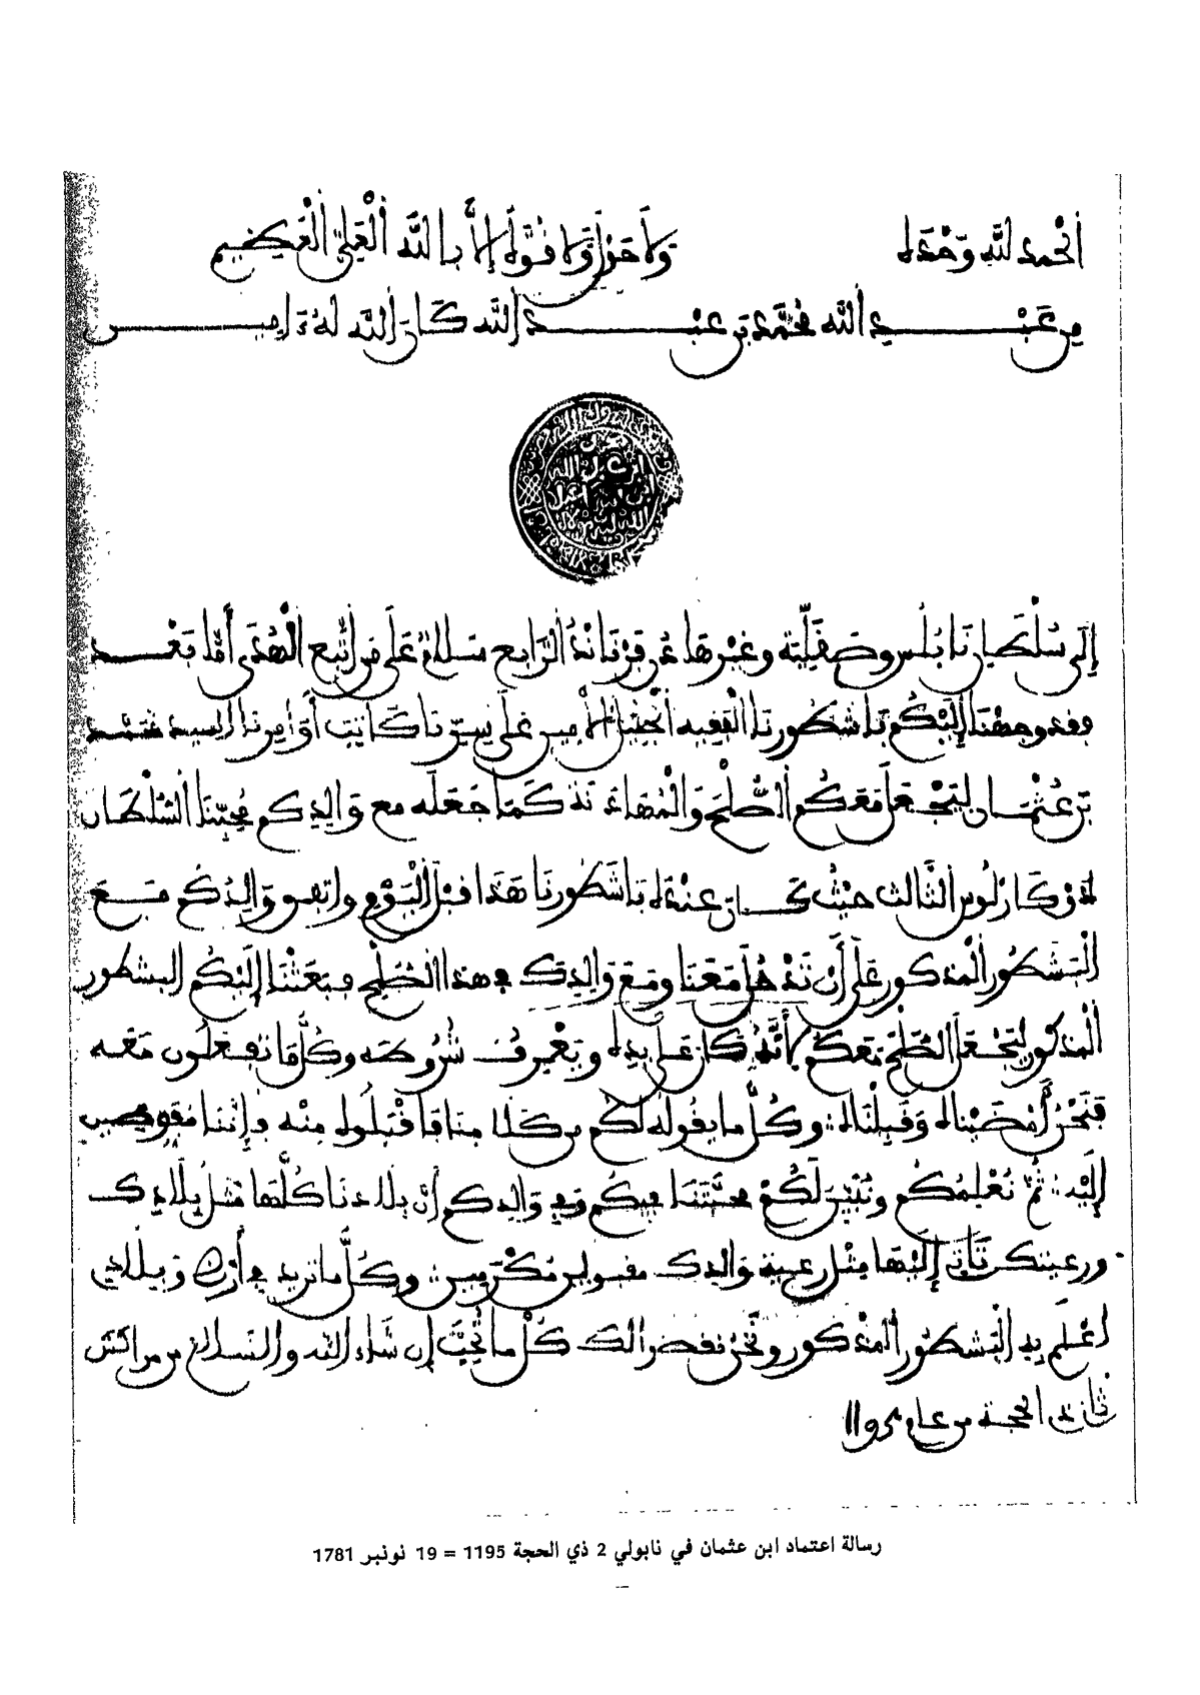 الحمد لله وحده ولا حول ولا قوة إلا بالله العلي العظيم
من عبد الله محمد بن عبد الله كان الله له ءامين
محمد
ابن عبد الله
إلى سلطان نابلس وصقلية وغيرها فرناندُ الرابع سلام على من اتبع الهدى أما بعد
وقد وجهنا إليكم باشطورنا الفقيه الأمين على أوامرنا السيد محمد
بن عثمان ليجعل معكم الصلح والمهادنة كما جعله مع والدكم محبنا السلطان
ضون كارلوس الثالث حيث كان عنده باشطورنا هذا قبل اليوم واتفق والدكم مع
البشطور المذكور على أن معنا ومع والدك في هذا الصلح فبعثنا إليكم البشطور
المذكور ليجعل الصلح معكم لأنه كان على يده ويعرف شروطه وكل ما تفعلون معه
فنحن أمضيناه وقبلناه وكل ما يقوله لكم من كلامنا فاقبلوا منه فإننا مفوضين
إليه ثم نعلمكم ونبين لكم محبتنا فيكم وفي والدكم أن بلادنا كلها مثل بلادك
ورعيتك تأتي إليها مثل رعية والدك مقبولين مكرمين وكل ما تريد في أرض وبلادي
اعلم به البشطور المذكور ونحن نقضوا لك كل ما تحب إن شاء الله والسلام من مراكش
ثاني الحجة من عام
رسالة اعتماد ابن عثمان في نابولي 2 ذي الحجة 1195 = 19 نونبر 1781